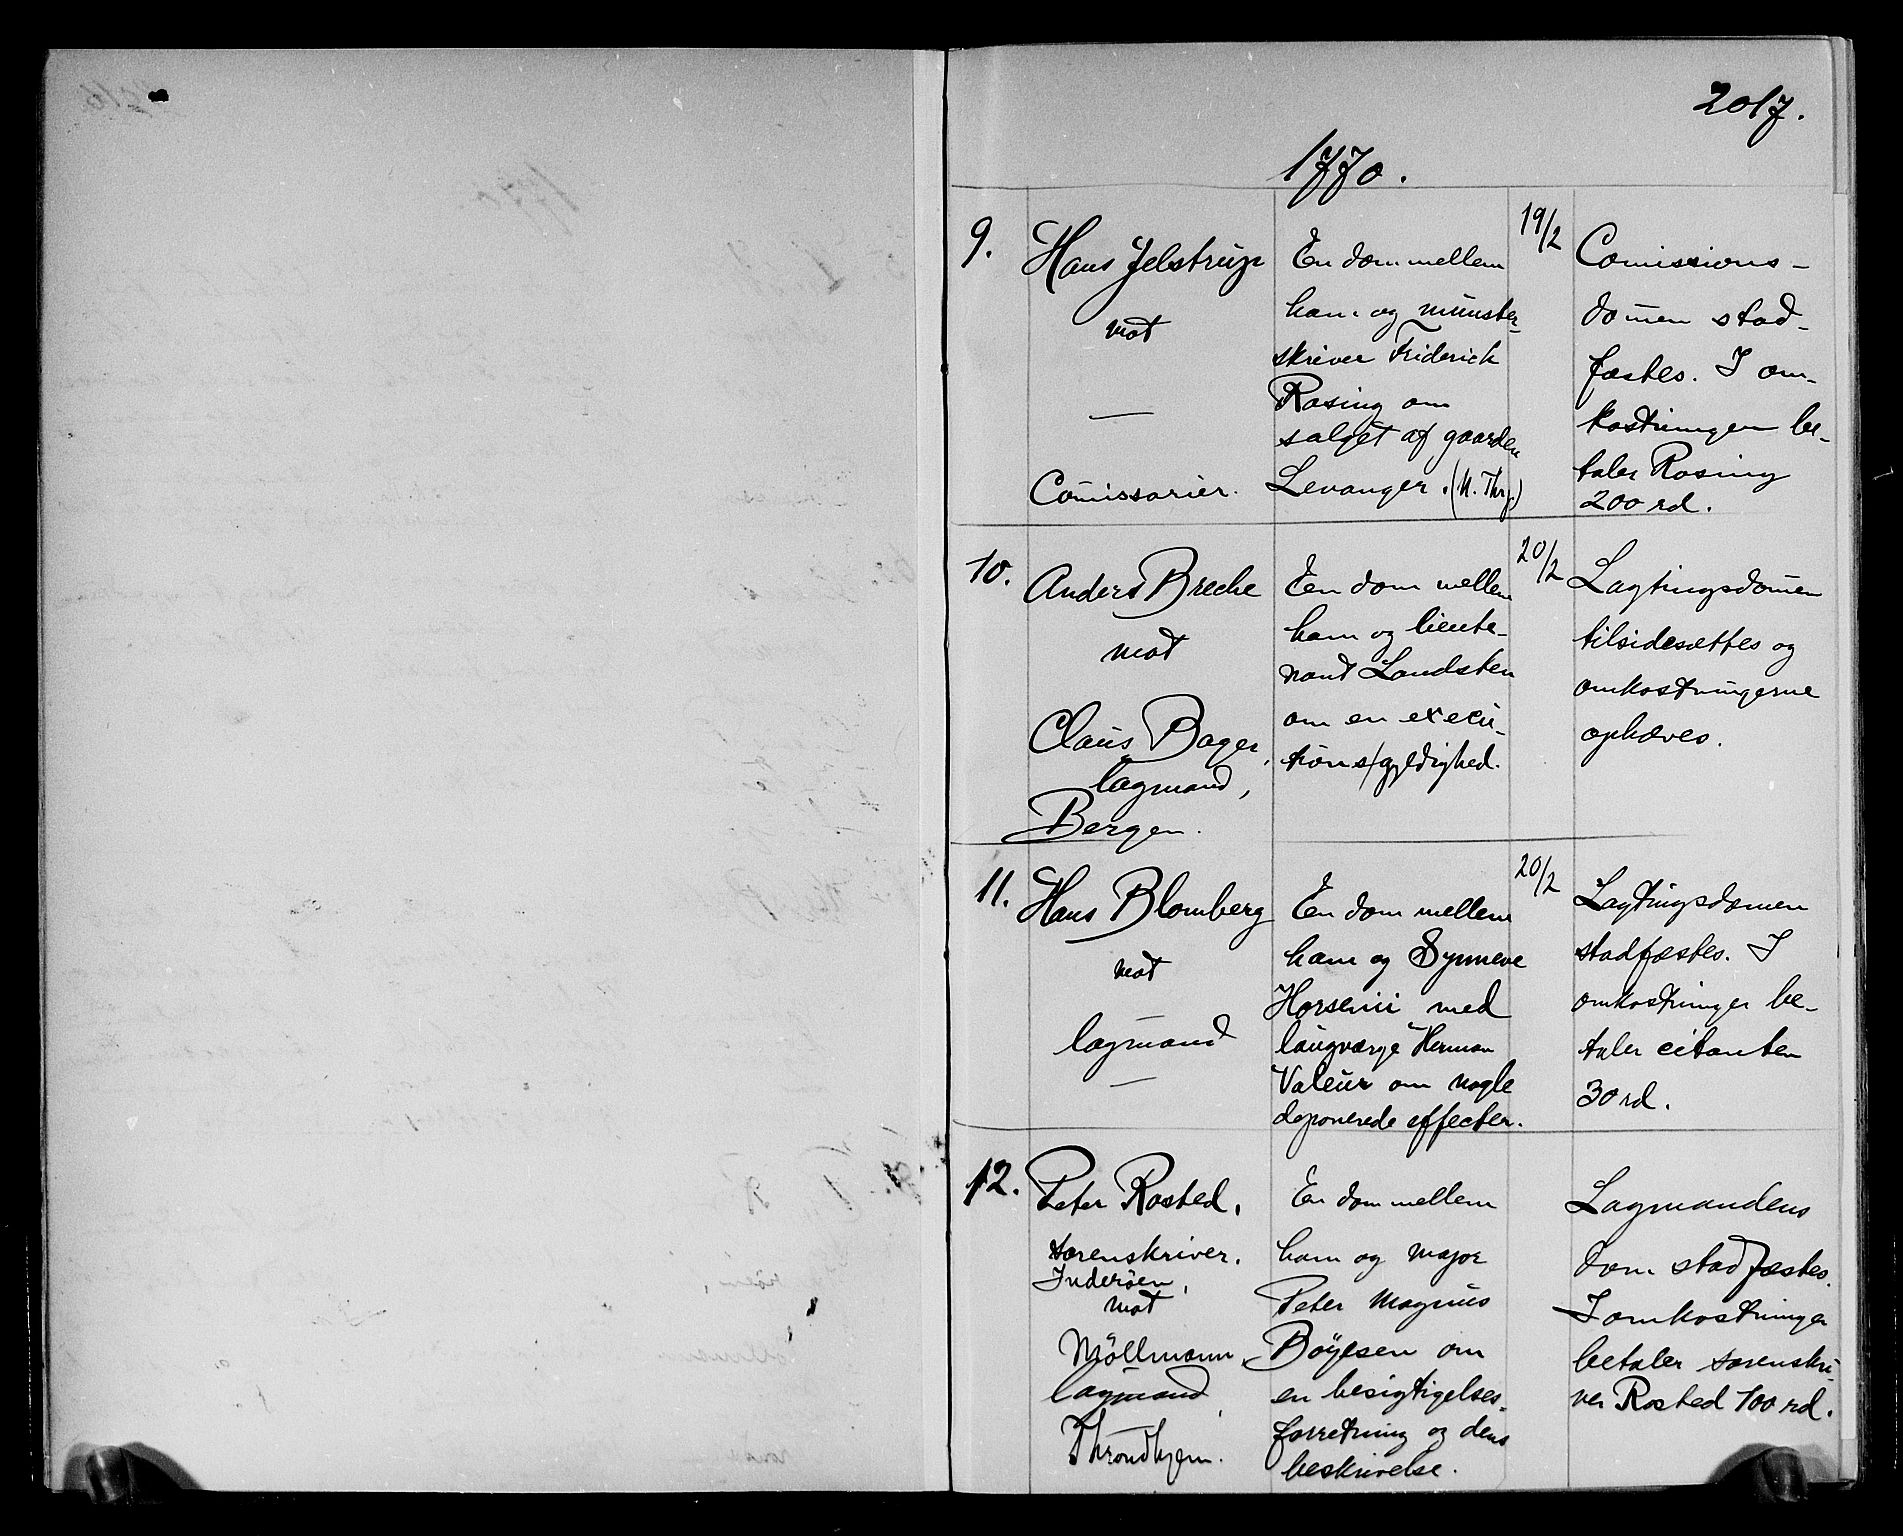 2017.
1770.
9.
Hans Jelstrup
mot
—
Comissarier.
En dom mellem
ham og münster-
skriver Friderich
Rosing om
salget af gaarden
Levanger. (N. Thrj.)
19/2
Comissions-
domen stad-
fæstes. I om-
kostninger be-
taler Rosing
200 rd.
10.
Anders Breche
mot
Claus Bager,
lagmand,
Bergen.
Een dom mellem
ham og lieute-
nant Landsten
om en execu-
tions gyldighed.
20/2
Lagtingsdomen
tilsidesættes og
omkostningerne
ophæves.
11.
Hans Blomberg
mot
—
lagmand
—
En dom mellem
ham og Synneve
med
laugværge Herman
Valeur om nogle
deponerede effecter.
20/2
Lagtingsdomen
stadfæstes. I
omkostninger be-
taler citanten
30 rd.
12.
Peter Rosted,
sorenskriver.
Inderöen,
mot
Möllmann,
lagmand,
Throndhjem.
En dom mellem
ham og major
Peter Magnus
Böyesen om
en besigtigelses-
forretning og dens
beskrivelse.
Lagmandens
dom stadfæstes.
I omkostninger
betaler sorenskri-
ver Rosted 100 rd.